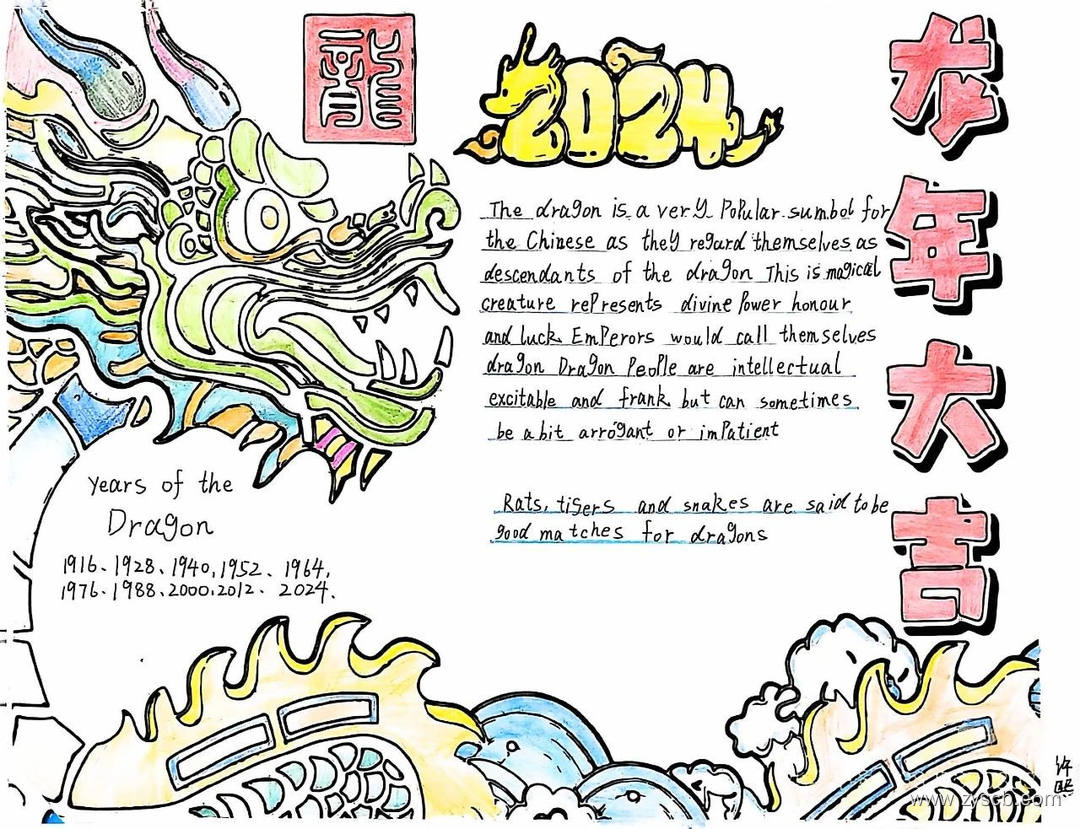 龍
2024
龙年大吉
The dragon is a very Popular sumbol for
the Chinese as they regard themselves as
descendants of the dragon This is magical
creature rePresents divine Power honour
and luck EmPerors would call themselves
dragon Dragon PeoPle are intellectual
excitable and frank but can sometimes
be a bit arrogant or imPatient
Rats, tigers and snakes are said to be
good matches for dragons
years of the
Dragon
1916、1928、1940,1952、1964,
1976、1988、2000,2012、2024.
www.zyscb.com